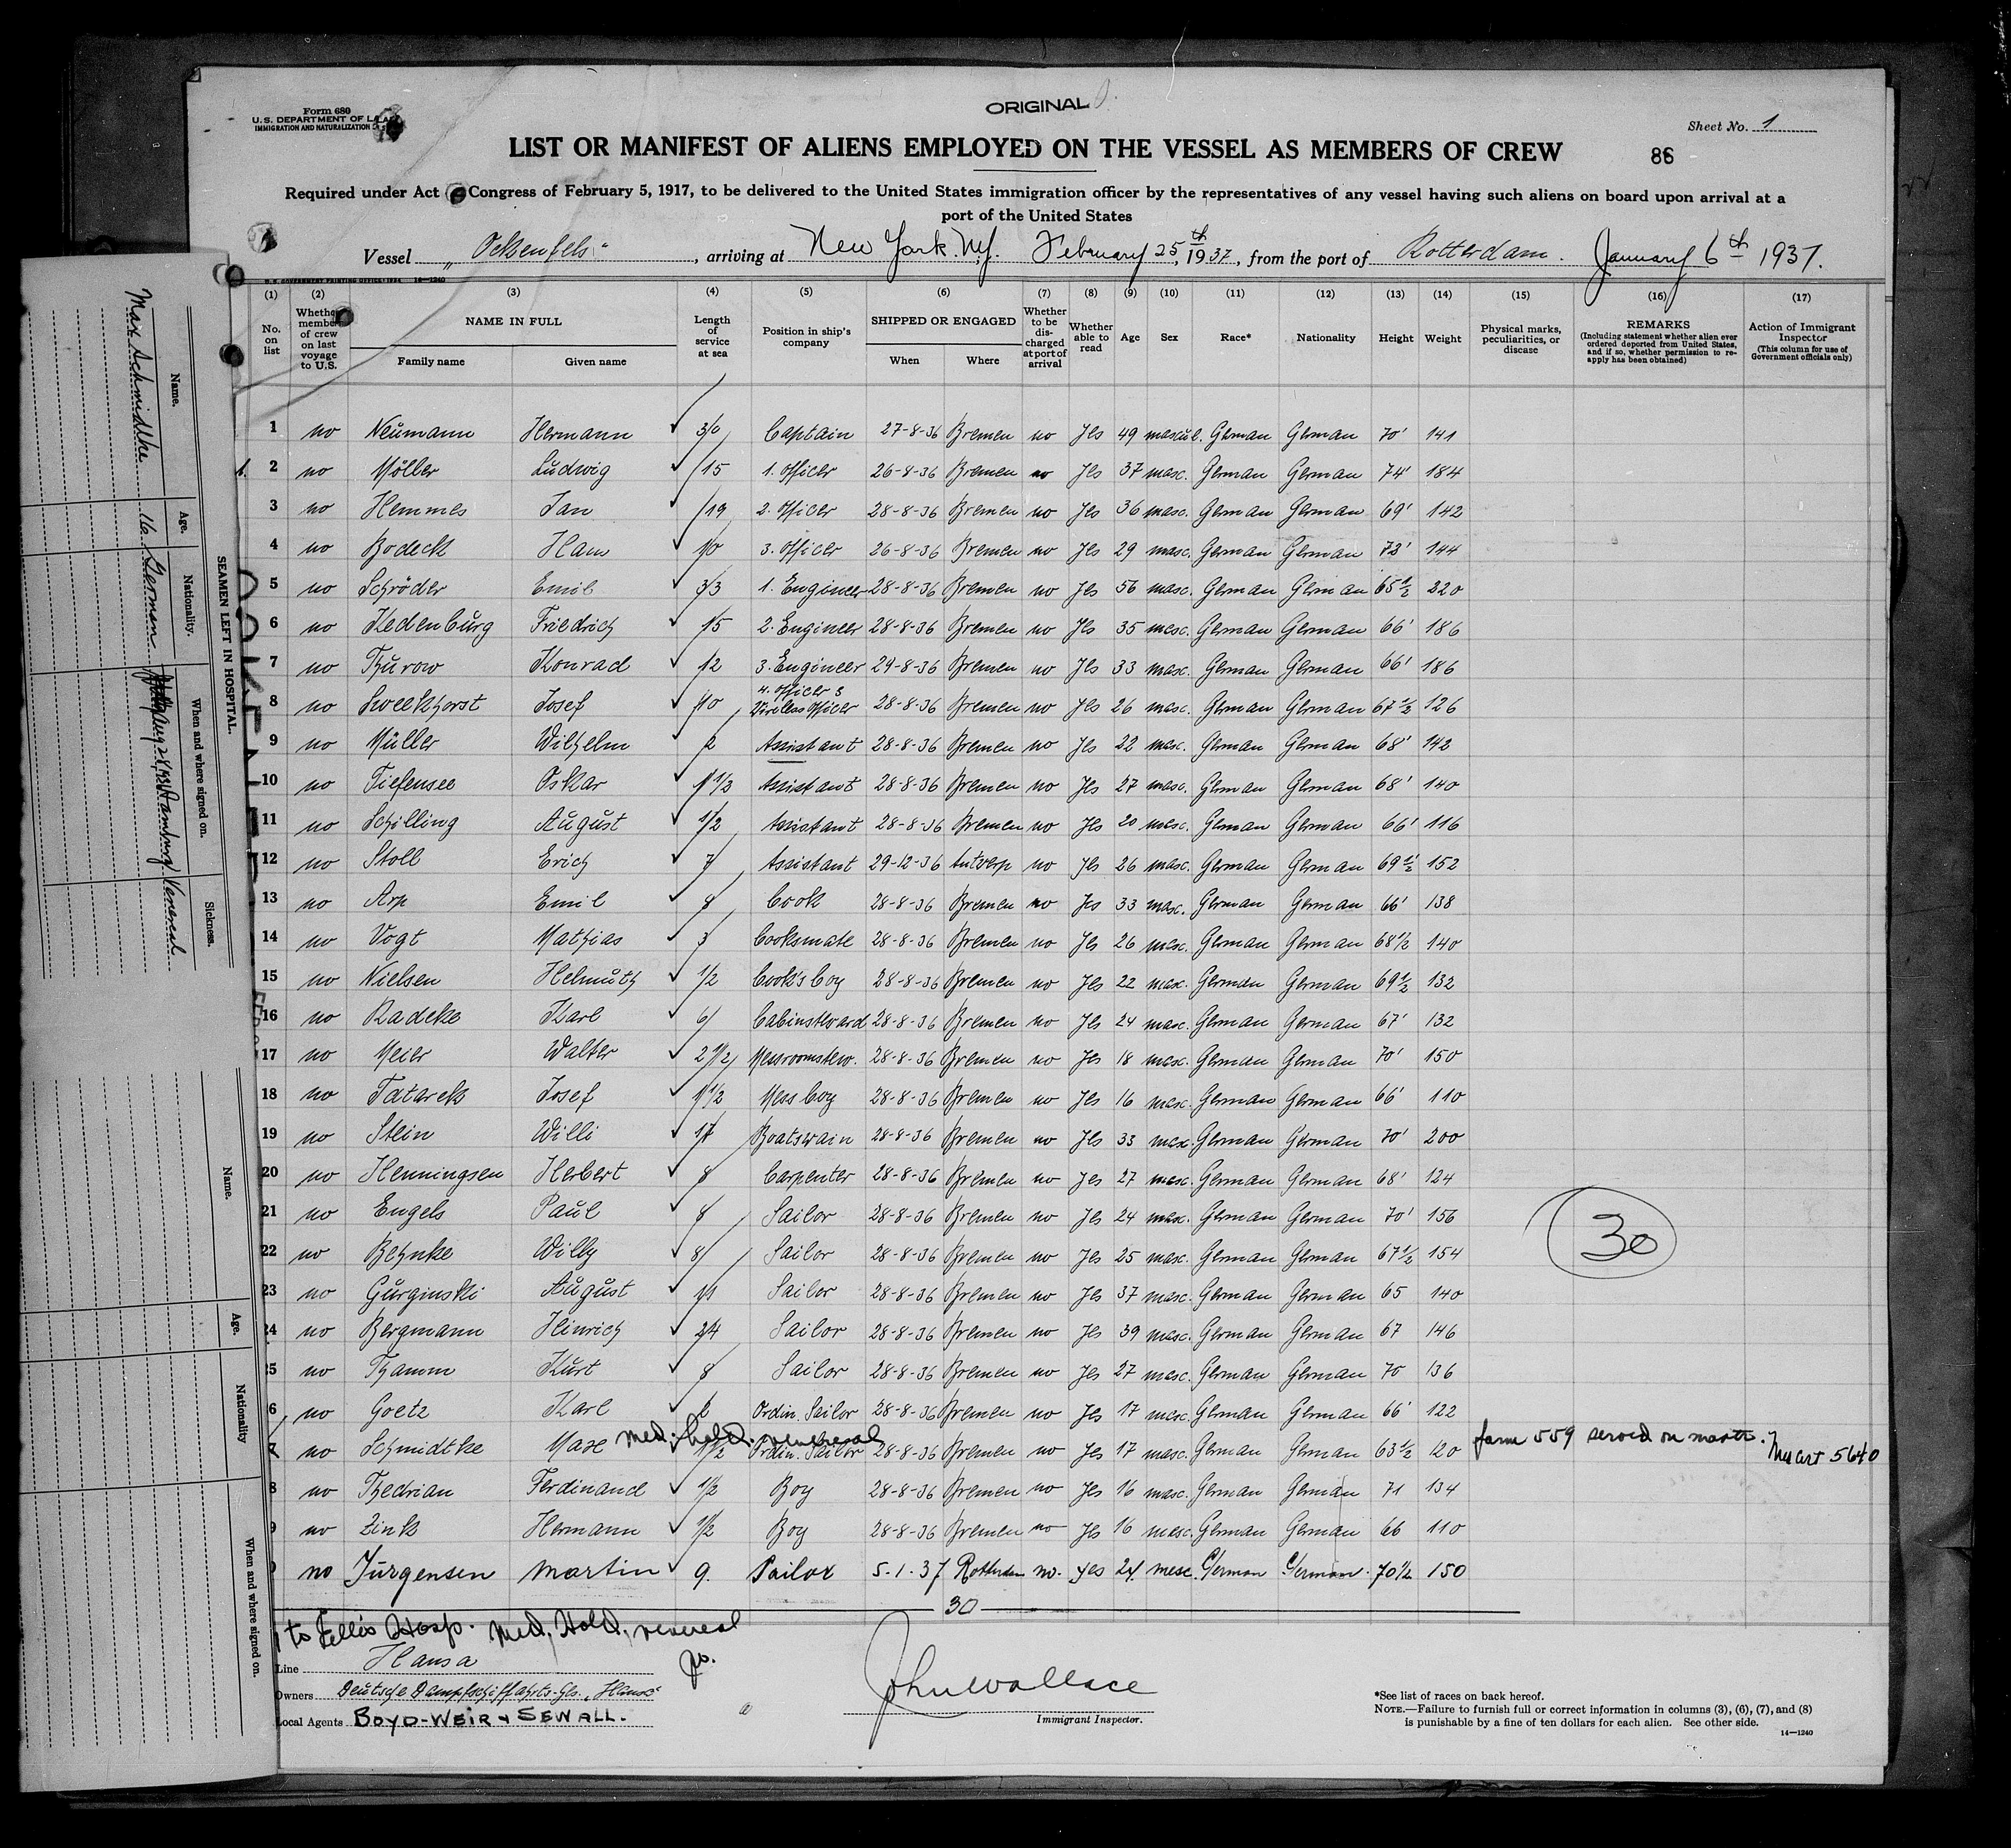 ORIGINAL
Form 680
U. S. DEPARTMENT OF LABOR
IMMIGRATION AND NATURALIZATION
Sheet No. 1
LIST OR MANIFEST OF ALIENS EMPLOYED ON THE VESSEL AS MEMBERS OF CREW
86
Required under Act of Congress of February 5, 1917, to be delivered to the United States immigration officer by the representatives of any vessel having such aliens on board upon arrival at a
port of the United States
Vessel „Ocksenfels“, arriving at New York. N.Y. February 25th, 1937, from the port of Rotterdam. January 6th 1937.
(1) (2) (3) (4) (5) (6) (7) (8) (9) (10) (11) (12) (13) (14) (15) (16) (17)
No. on list
Whether member of crew on last voyage to U.S.
NAME IN FULL
Family name Given name
Length of service at sea
Position in ship's company
SHIPPED OR ENGAGED
When Where
Whether to be discharged at port of arrival
Whether able to read
Age
Sex
Race*
Nationality
Height
Weight
Physical marks, peculiarities, or disease
REMARKS
(Including statement whether alien ever ordered deported from United States, and if so, whether permission to reapply has been obtained)
Action of Immigrant Inspector
(This column for use of Government officials only)
1 no Neumann Hermann 30 Captain 27-8-36 Bremen no Yes 49 mascul. German German 70' 141
2 no Möller Ludwig 15 1. Officer 26-8-36 Bremen no Yes 37 masc. German German 74' 184
3 no Hemmes Jan 19 2. Officer 28-8-36 Bremen no Yes 36 masc. German German 69' 142
4 no Bodeck Hans 10 3. Officer 26-8-36 Bremen no Yes 29 masc. German German 72' 144
5 no Schröder Emil 33 1. Engineer 28-8-36 Bremen no Yes 56 masc. German German 65½ 220
6 no Kedenburg Friedrich 15 2. Engineer 28-8-36 Bremen no Yes 35 masc. German German 66' 186
7 no Thurow Konrad 12 3. Engineer 29-8-36 Bremen no Yes 33 masc. German German 66' 186
8 no Sweekhorst Josef 10 4. Officer & Wireless Officer 28-8-36 Bremen no Yes 26 masc. German German 67½ 126
9 no Müller Wilhelm 2 Assistant 28-8-36 Bremen no Yes 22 masc. German German 68' 142
10 no Tiefensee Oskar 1 1/2 Assistant 28-8-36 Bremen no Yes 27 masc. German German 68' 140
11 no Schilling August 1/2 Assistant 28-8-36 Bremen no Yes 20 masc. German German 66' 116
12 no Stoll Erich 7 Assistant 29-12-36 Antverp no Yes 26 masc. German German 69½ 152
13 no Arp Emil 8 Cook 28-8-36 Bremen no Yes 33 masc. German German 66' 138
14 no Vogt Mathias 3 Cooksmate 28-8-36 Bremen no Yes 26 masc. German German 68½ 140
15 no Nielsen Helmuth 1/2 Cook's boy 28-8-36 Bremen no Yes 22 masc. German German 69½ 132
16 no Radeke Karl 6 Cabinsteward 28-8-36 Bremen no Yes 24 masc. German German 67' 132
17 no Meier Walter 2 1/2 Messroomstew. 28-8-36 Bremen no Yes 18 masc. German German 70' 150
18 no Tatarek Josef 1 1/2 Mess boy 28-8-36 Bremen no Yes 16 masc. German German 66' 110
19 no Stein Willi 17 Boatswain 28-8-36 Bremen no Yes 33 masc. German German 70' 200
20 no Henningsen Herbert 8 Carpenter 28-8-36 Bremen no Yes 27 masc. German German 68' 124
21 no Engels Paul 8 Sailor 28-8-36 Bremen no Yes 24 masc. German German 70' 156
22 no Behnke Willy 8 Sailor 28-8-36 Bremen no Yes 25 masc. German German 67½ 154
23 no Gurginski August 11 Sailor 28-8-36 Bremen no Yes 37 masc. German German 65 140
24 no Bergmann Heinrich 24 Sailor 28-8-36 Bremen no Yes 39 masc. German German 67 146
25 no Thamm Kurt 8 Sailor 28-8-36 Bremen no Yes 27 masc. German German 70 136
6 no Goetz Karl 2 Ordin. Sailor 28-8-36 Bremen no Yes 17 masc. German German 66' 122
med. held. venereal
7 no Schmidtke Max 1 1/2 Ordin. Sailor 28-8-36 Bremen no Yes 17 masc. German German 63½ 120 form 559 served on master.
8 no Thedrian Ferdinand 1/2 Boy 28-8-36 Bremen no Yes 16 masc. German German 71 134
9 no Zink Hermann 1/2 Boy 28-8-36 Bremen no Yes 16 masc. German German 66 110
no Jürgensen Martin 9. Sailor 5-1-37 Rotterdam no. yes 24. masc. German German 70½ 150
30
30
to Ellis Hosp. Med. Hold. venereal
Line Hansa
Owners Deutsche Dampfschiffahrts-Ges. „Hansa“
Local Agents BOYD-WEIR & SEWALL.
John Wallace
Immigrant Inspector.
*See list of races on back hereof.
NOTE.—Failure to furnish full or correct information in columns (3), (6), (7), and (8)
is punishable by a fine of ten dollars for each alien. See other side.
14—1240
SEAMEN LEFT IN HOSPITAL.
Name. Age. Nationality. When and where signed on. Sickness.
Max Schmidtke 16 German Aug 28, 1936 Hamburg Venereal
Name. Age. Nationality When and where signed on.